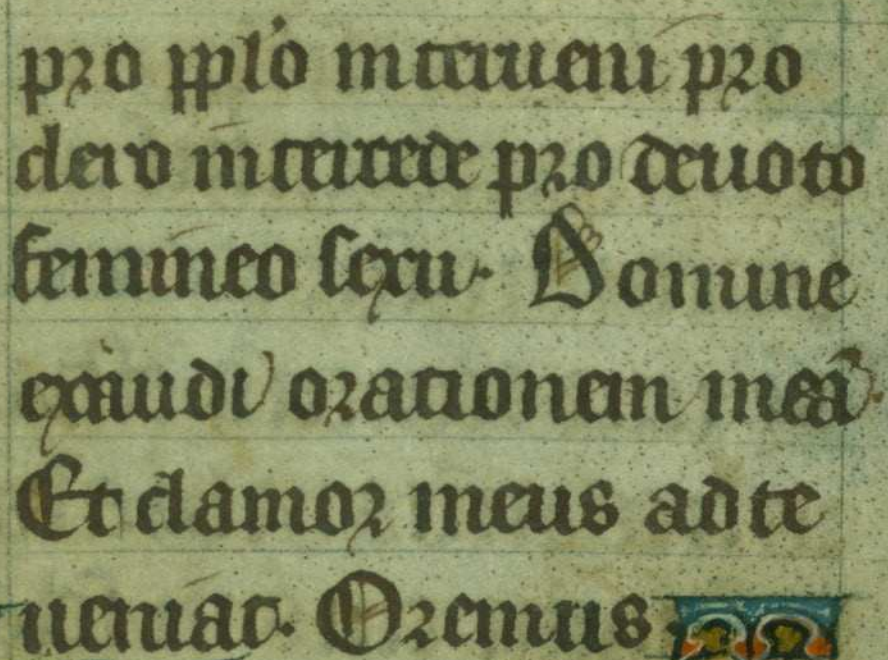 pro pplo interueni pro
clero intercede pro deuoto
femineo sexu. Domine
exaudi orationem meã.
Et clamor meus ad te
ueniat. Oremus.